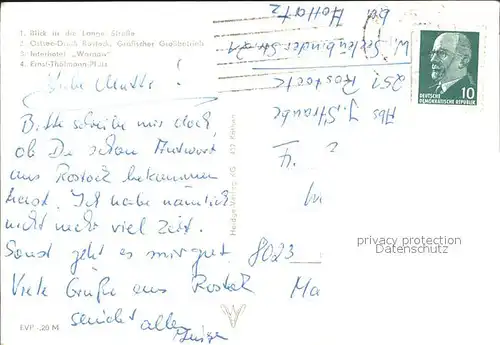 1. Blick in die Lange Straße
2. Ostsee-Druck Rostock, Grafischer Großbetrieb
3. Interhotel „Warnow"
4. Ernst-Thälmann-Platz
Liebe Mutti!
Bitte schreibe mir doch,
ob Du schon Antwort
aus Rostock bekommen
hast. Ich habe nämlich
nicht mehr viel Zeit.
Sonst geht es mir gut.
Viele Grüße aus Rostock
sendet allen
EVP -,20 M
Abs J. Straube
251 Rostock
W.
bei Hollatz
8023
Ma
DEUTSCHE
DEMOKRATISCHE REPUBLIK
10
privacy protection
Datenschutz